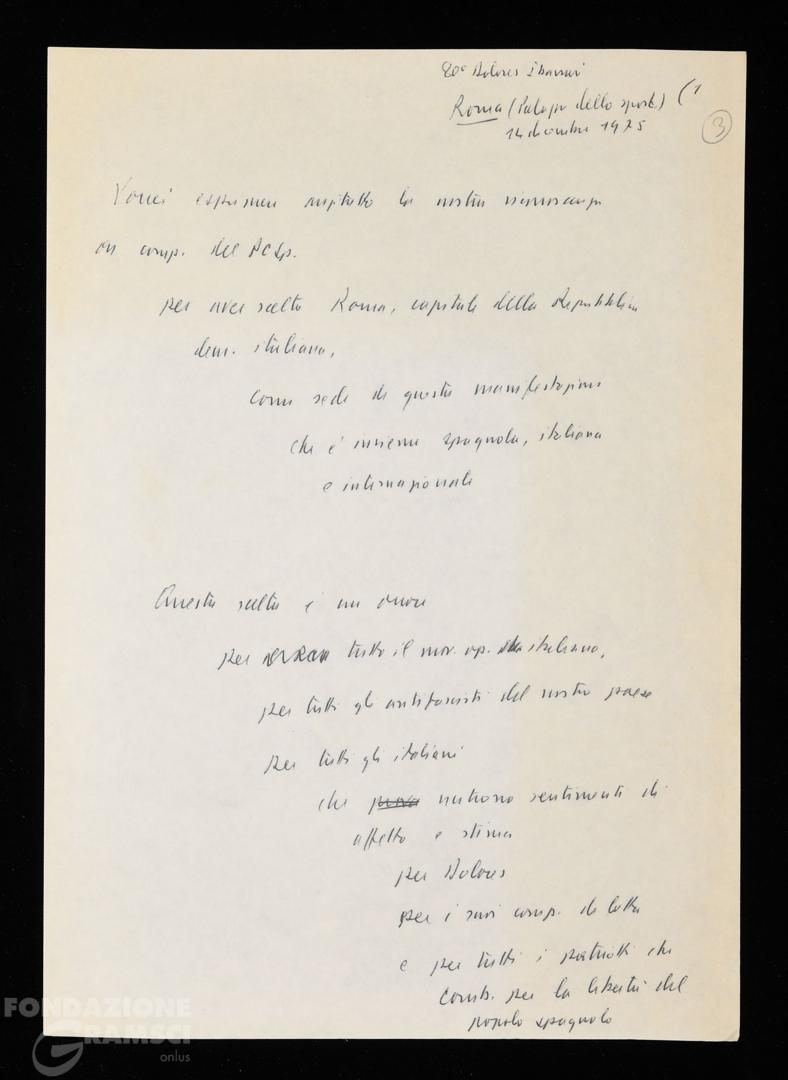 80° Dolores Ibarruri
Roma (Palazzo dello sport) (1
14 dicembre 1975
3
Vorrei esprimere anzitutto la nostra riconoscenza
ai comp. del PCSp.
per aver scelto Roma, capitale della Repubblica
dem. italiana,
come sede di questa manifestazione
che è insieme spagnola, italiana
e internazionale
Questa scelta è un onore
per tutto il mov. op. italiano,
per tutti gli antifascisti del nostro paese
per tutti gli italiani
che prova nutrono sentimenti di
affetto e stima
per Dolores
per i suoi comp. di lotta
e per tutti i patrioti che
comb. per la libertà del
popolo spagnolo
FONDAZIONE
GRAMSCI
onlus